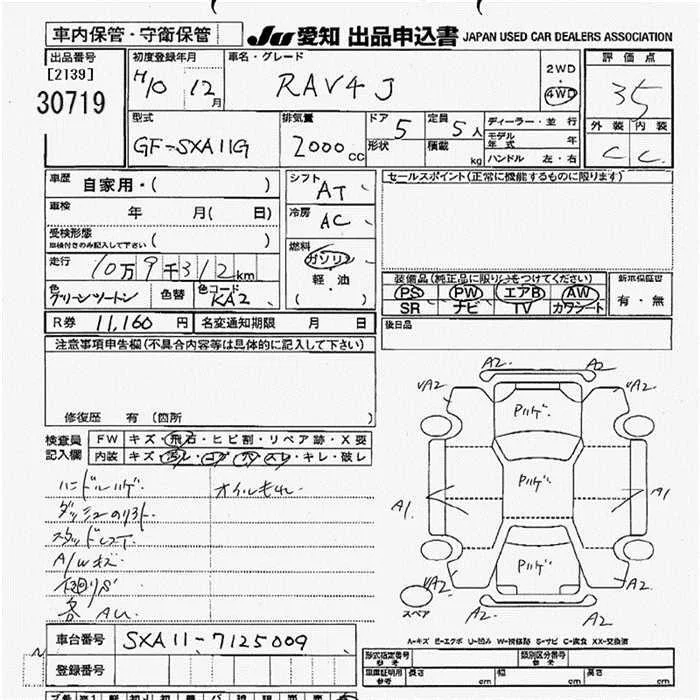 車内保管・守衛保管
JU 愛知 出品申込書 JAPAN USED CAR DEALERS ASSOCIATION
出品番号
[2139]
30719
初度登録年月
H10 12月
車名・グレード
RAV4 J
2WD
4WD
評価点
35
外装 内装
C C
型式
GF-SXA11G
排気量
2000cc
ドア 5
形状
定員 5人
積載 kg
ディーラー・並行
モデル年式 年
ハンドル 左・右
車歴 自家用・( )
車検 年 月( 日)
受検形態
車検付きのみ記入して下さい ( )
走行 10万9千312km
色 グリーンツートン 色替 色コード KA2
シフト AT
冷房 AC
燃料
ガソリン
軽・油
( )
セールスポイント(正常に機能するものに限ります)
装備品(純正品に限り○をつけてください)
PS PW エアB AW
SR ナビ TV カワシート
新車保証書
有・無
R券 11,160円 名変通知期限 月 日
後日品
注意事項申告欄(不具合内容等は具体的に記入して下さい)
修復歴 有 (箇所 )
検査員記入欄
FW キズ・飛石・ヒビ割・リペア跡・X要
内装 キズ・汚レ・コゲ・穴・スレ・キレ・破レ
ハンドルハゲ オイルモレ
A/Wキズ
下廻りS
各AU
A2. A2
√A2 √A2
Pハゲ
Pハゲ
A1. A1
Pハゲ
√A2 A2.
スペア
A2 A2
A=キズ E=エクボ U=凹み W=補修跡 S=サビ C=腐食 XX=交換済
車台番号 SXA11-7125009
登録番号
形式指定番号 参考
類別区分番号 参考
車庫証明用 参考 長さ cm 幅 cm 高さ cm